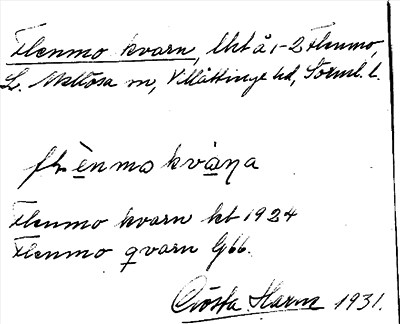 Flenmo kvarn, lht å 1-2 Flenmo,
L. Mellösa sn, Villåttinge hd, Söderml. l.
flènmokvà̱ɳa
Flenmo kvarn kt 1924
Flenmo qvarn G66.
Gösta Harm 1931.